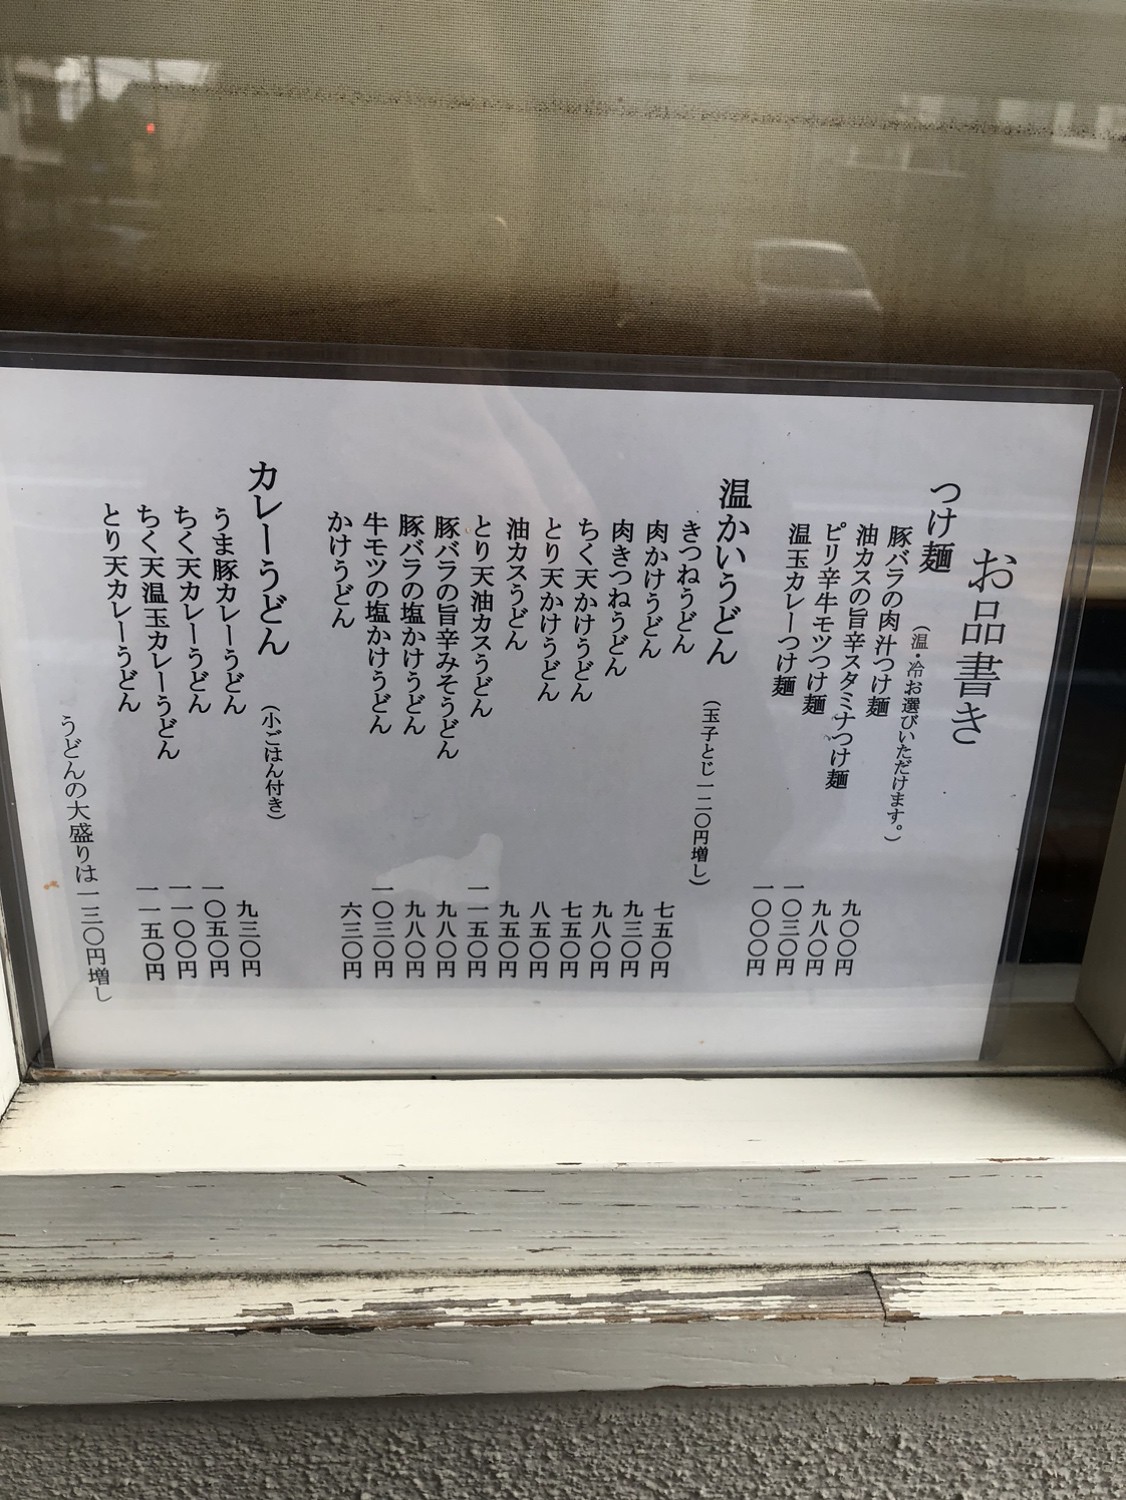 お品書き
つけ麺
（温・冷お選びいただけます。）
豚バラの肉汁つけ麺 九〇〇円
油カスの旨辛スタミナつけ麺 九八〇円
ピリ辛牛モツつけ麺 一〇三〇円
温玉カレーつけ麺 一〇〇〇円
温かいうどん （玉子とじ一二〇円増し）
きつねうどん 七五〇円
肉かけうどん 九三〇円
肉きつねうどん 九八〇円
ちく天かけうどん 七五〇円
とり天かけうどん 八五〇円
油カスうどん 九五〇円
とり天油カスうどん 一一五〇円
豚バラの旨辛みそうどん 九八〇円
豚バラの塩かけうどん 九八〇円
牛モツの塩かけうどん 一〇三〇円
かけうどん 六三〇円
カレーうどん （小ごはん付き）
うま豚カレーうどん 九三〇円
ちく天カレーうどん 一〇五〇円
ちく天温玉カレーうどん 一一〇〇円
とり天カレーうどん 一一五〇円
うどんの大盛りは一三〇円増し